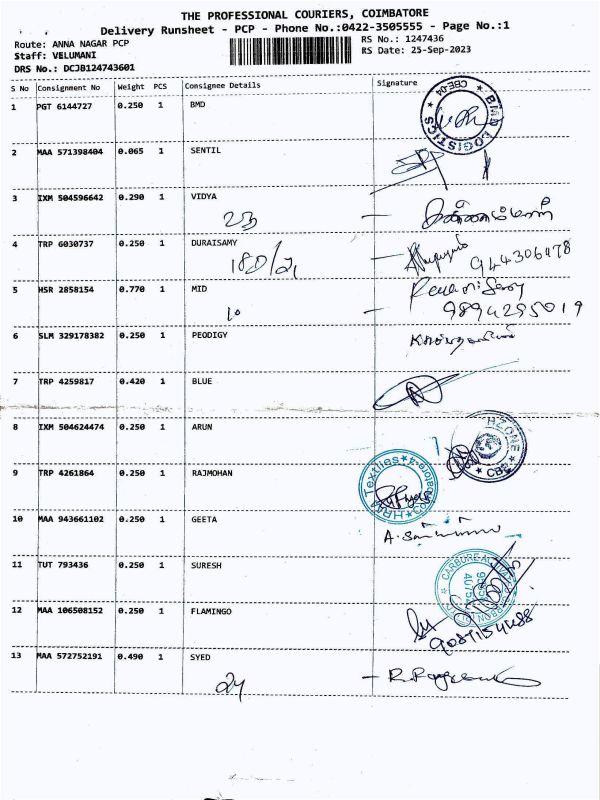 THE PROFESSIONAL COURIERS, COIMBATORE
Delivery Runsheet - PCP - Phone No.:0422-3505555 - Page No.:1
Route: ANNA NAGAR PCP
RS No.: 1247436
Staff: VELUMANI
RS Date: 25-Sep-2023
DRS No.: DCJB124743601
S No Consignment No Weight PCS Consignee Details Signature
1 PGT 6144727 0.250 1 BMD
BMD LOGISTICS ★ CBE-04 ★
2 MAA 571398404 0.065 1 SENTIL
3 IXM 504596642 0.290 1 VIDYA
23
4 TRP 6030737 0.250 1 DURAISAMY
180/21
944306478
5 HSR 2858154 0.770 1 MID
10
9894295019
6 SLM 329178382 0.250 1 PEODIGY
7 TRP 4259817 0.420 1 BLUE
8 IXM 504624474 0.250 1 ARUN
HZONE ★ CBE ★
9 TRP 4261864 0.250 1 RAJMOHAN
HRM Textiles ★ Coimbatore-4 ★
10 MAA 943661102 0.250 1 GEETA
11 TUT 793436 0.250 1 SURESH
12 MAA 106508152 0.250 1 FLAMINGO
13 MAA 572752191 0.490 1 SYED
24